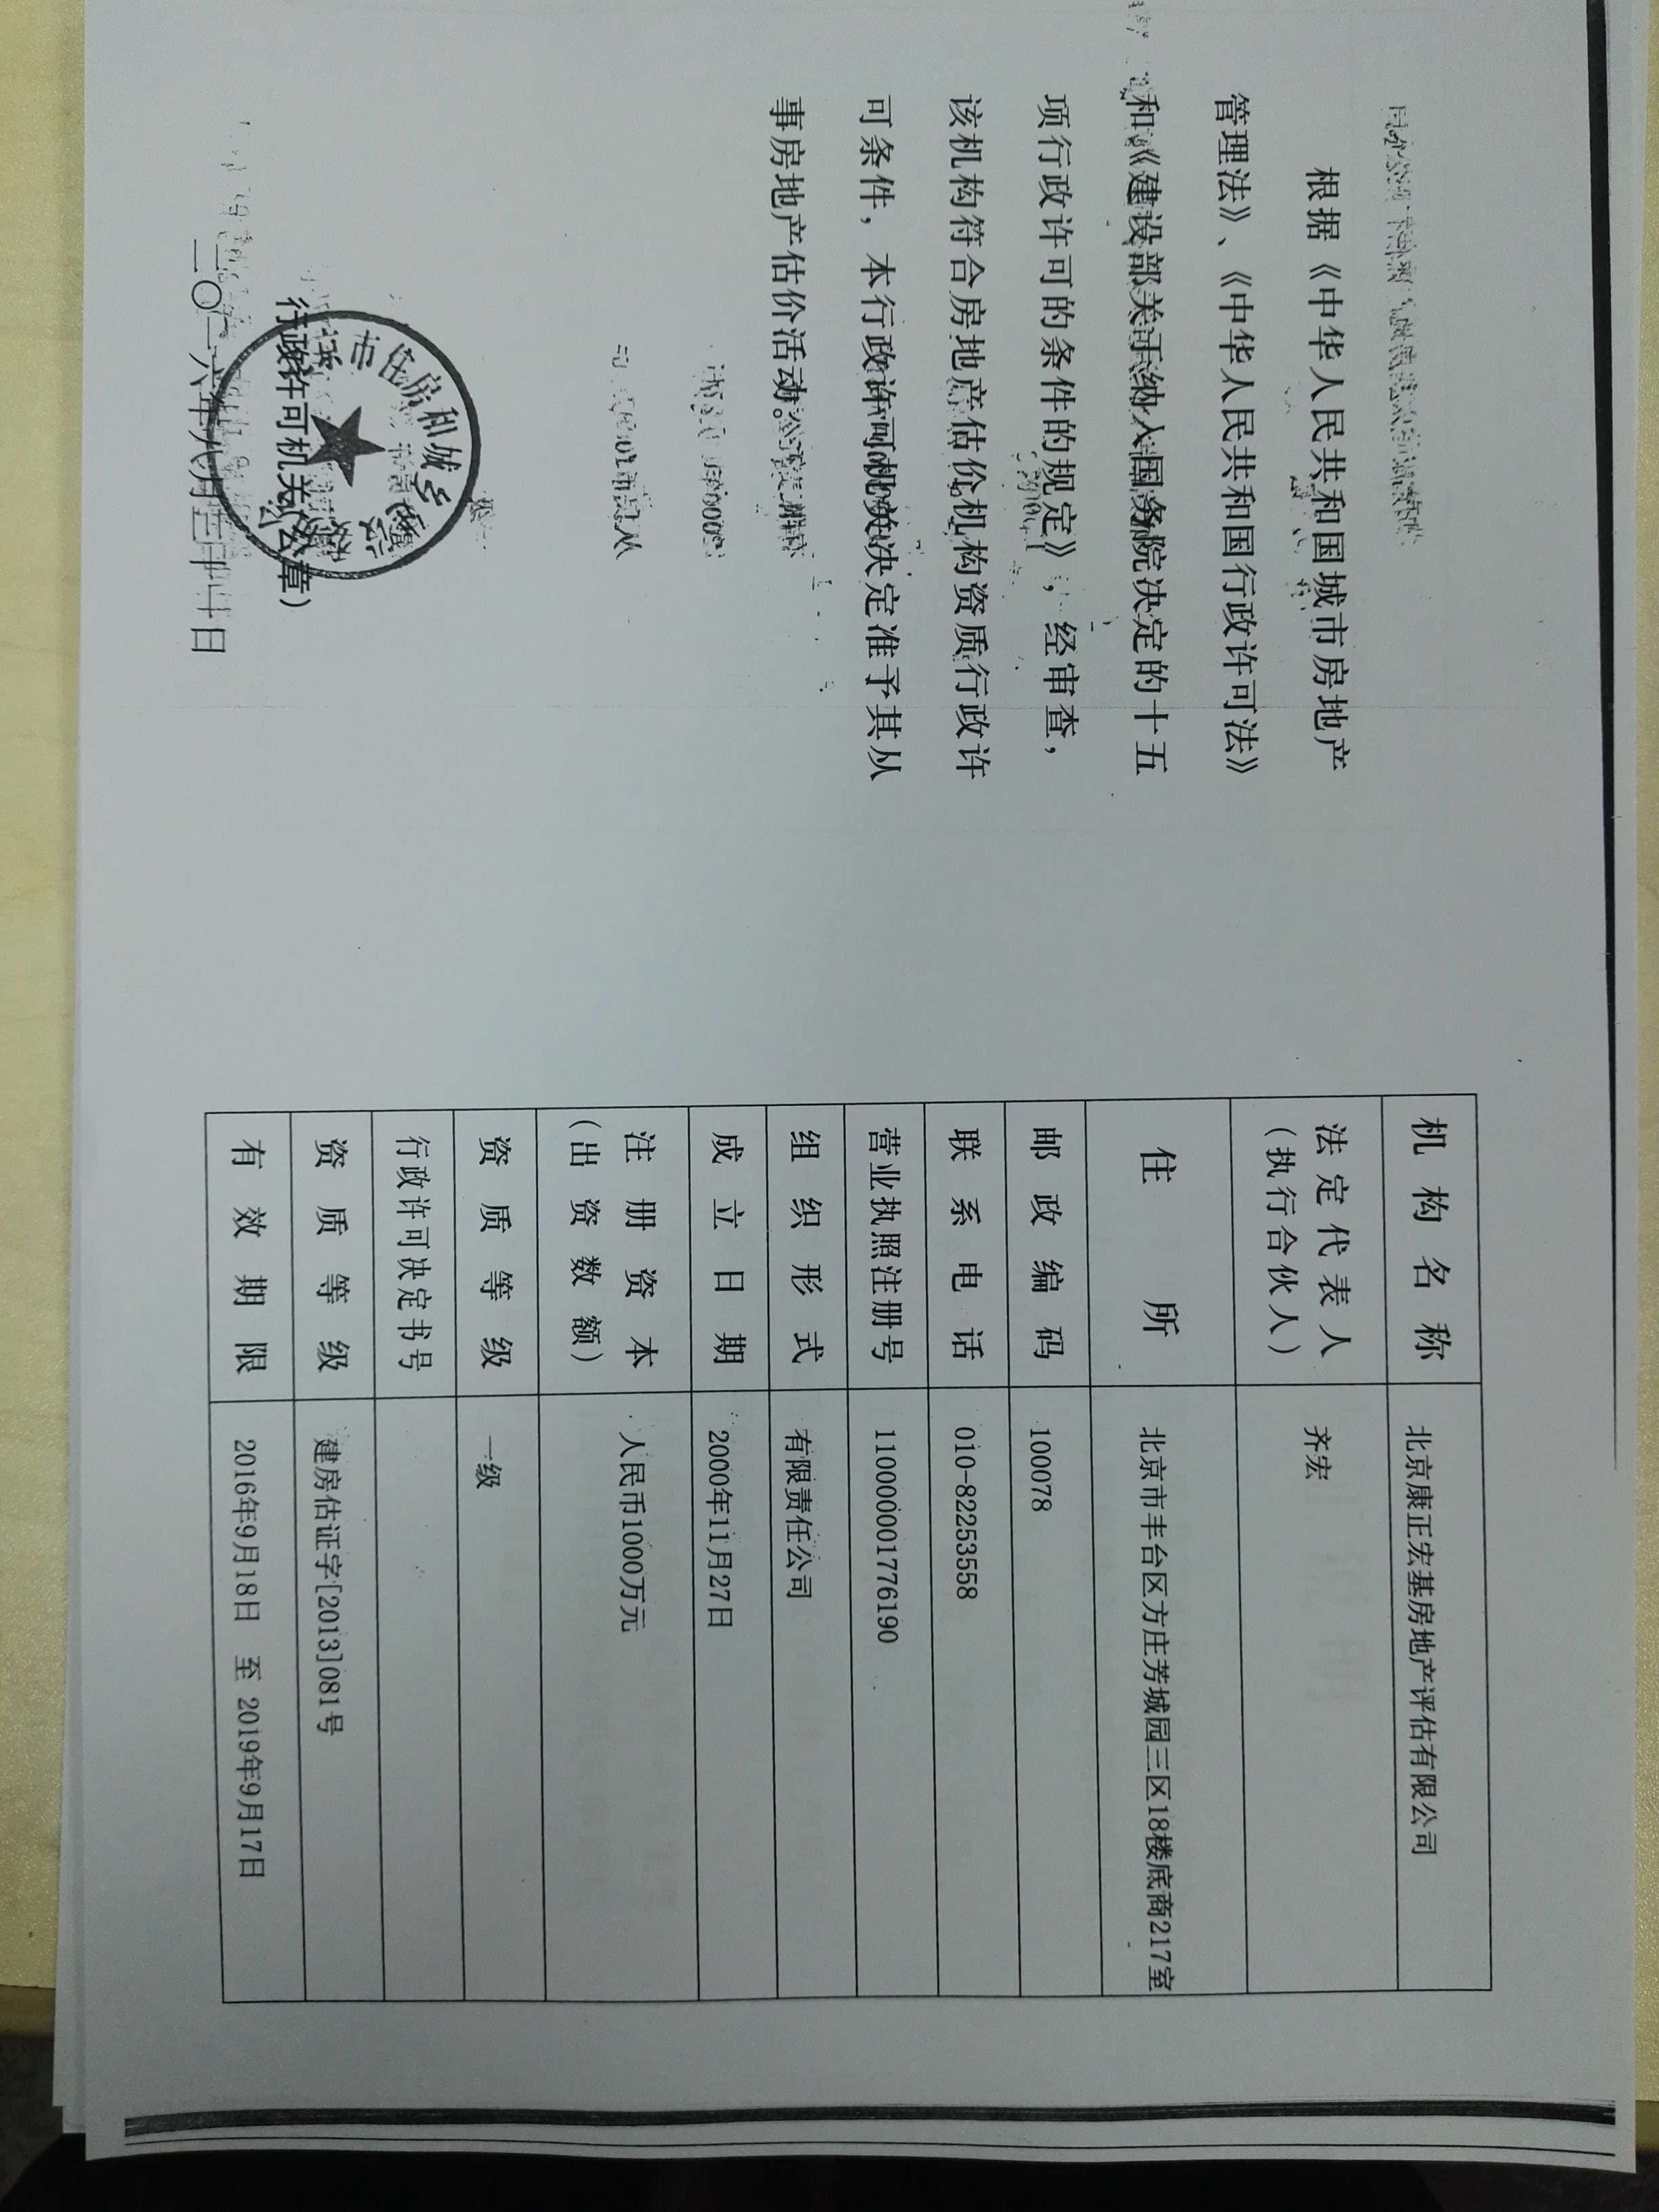 根据《中华人民共和国城市房地产
管理法》、《中华人民共和国行政许可法》
和《建设部关于纳入国务院决定的十五
项行政许可的条件的规定》，经审查，
该机构符合房地产估价机构资质行政许
可条件，本行政许可机关决定准予其从
事房地产估价活动。
市住房和城乡
行政许可机关（公章）
二〇一六年八月三十日
机构名称 北京康正宏基房地产评估有限公司
法定代表人
（执行合伙人） 齐宏
住所 北京市丰台区方庄芳城园三区18楼底商217室
邮政编码 100078
联系电话 010-82253558
营业执照注册号 110000001776190
组织形式 有限责任公司
成立日期 2000年11月27日
注册资本
（出资数额） 人民币1000万元
资质等级 一级
行政许可决定书号
资质等级 建房估证字[2013]081号
有效期限 2016年9月18日 至 2019年9月17日